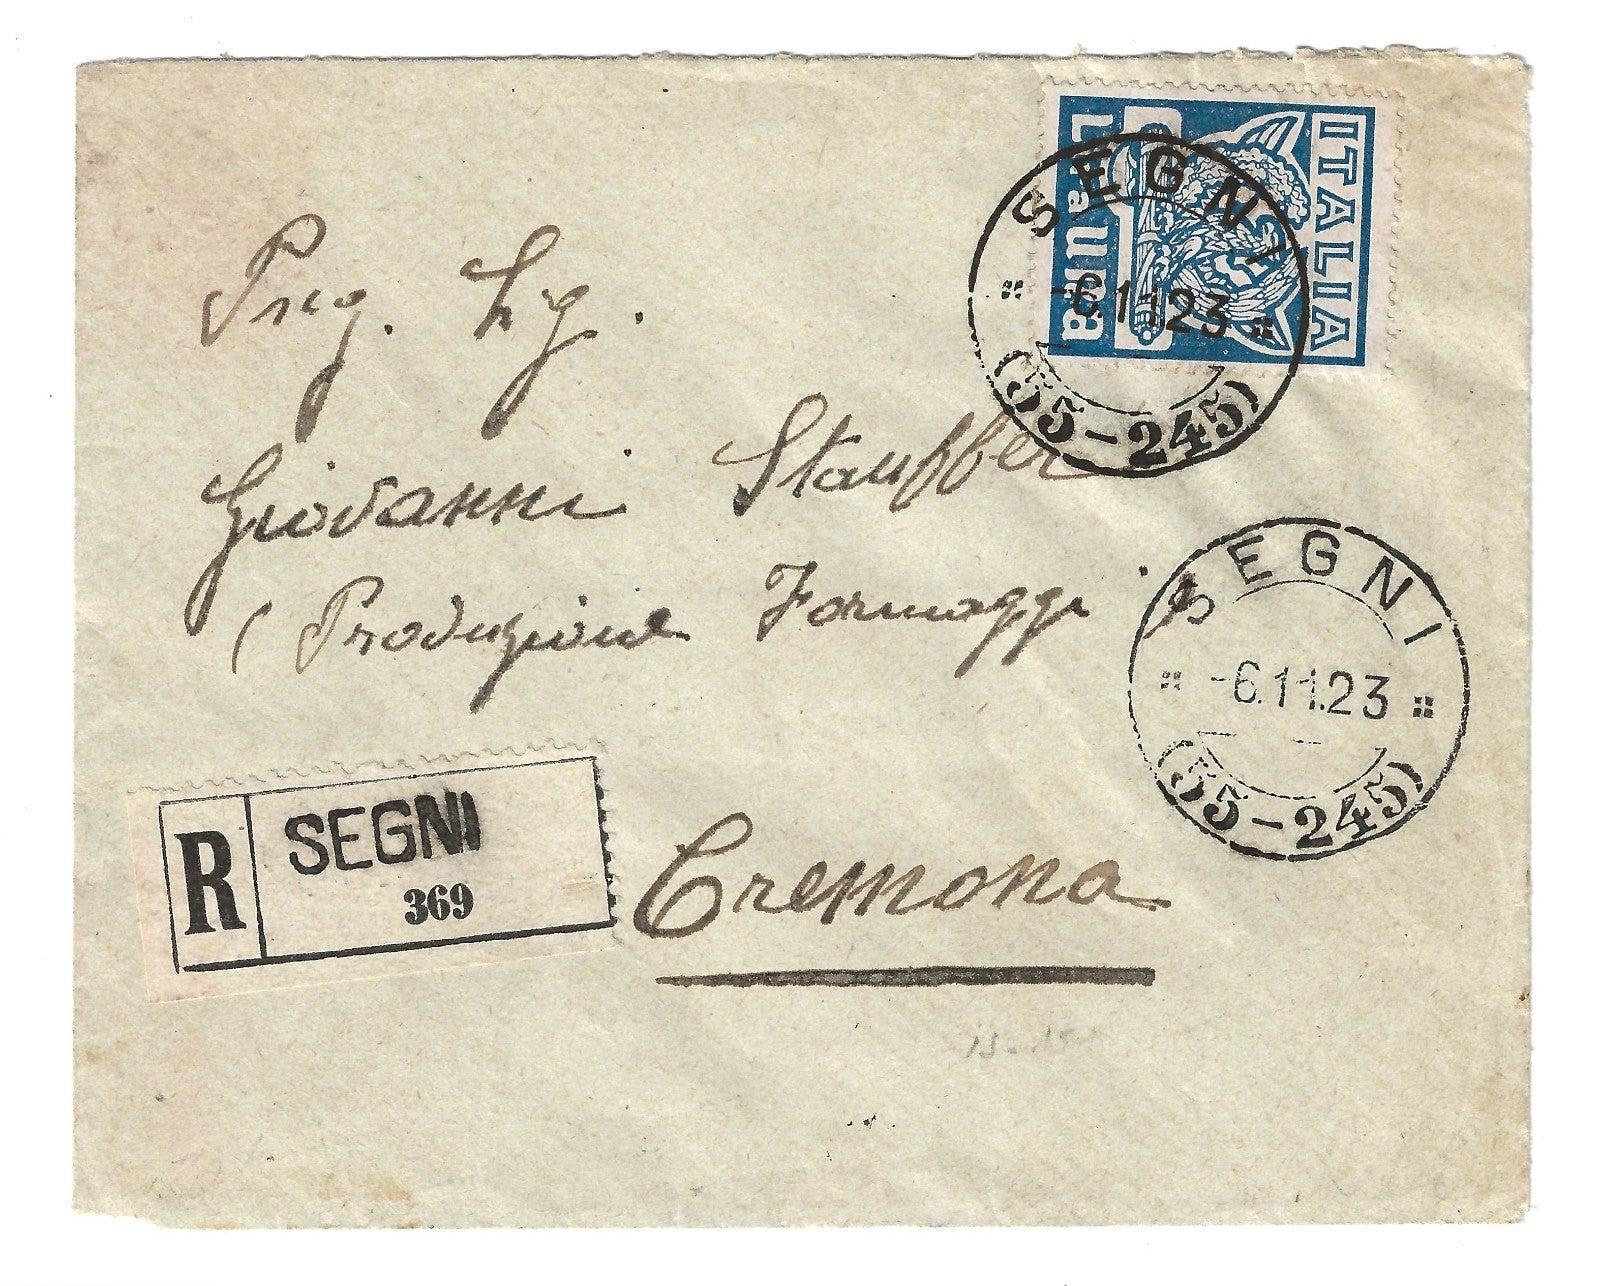 ITALIA
Launa
SEGNI
-6.11.23
(55-245)
Preg. Sig.
Giovanni Stauffer
(Produzione Formaggi
SEGNI
-6.11.23
(55-245)
R SEGNI
369
Cremona